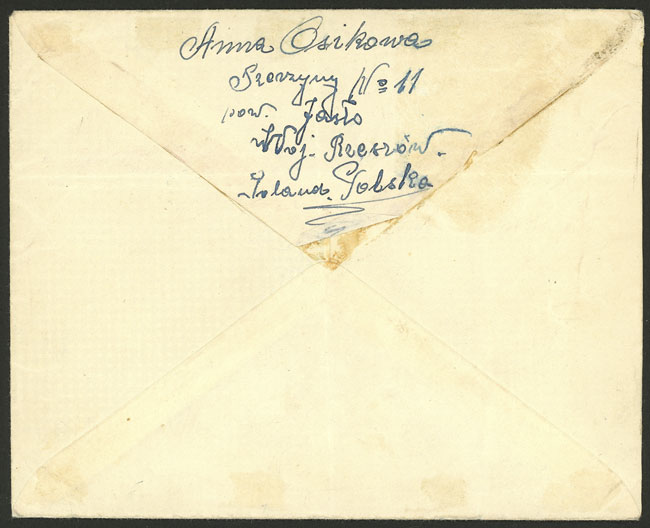 Anna Osikowa
Szerzyny No 11
pow. Jasło
Woj. Rzeszów.
Poland. Polska